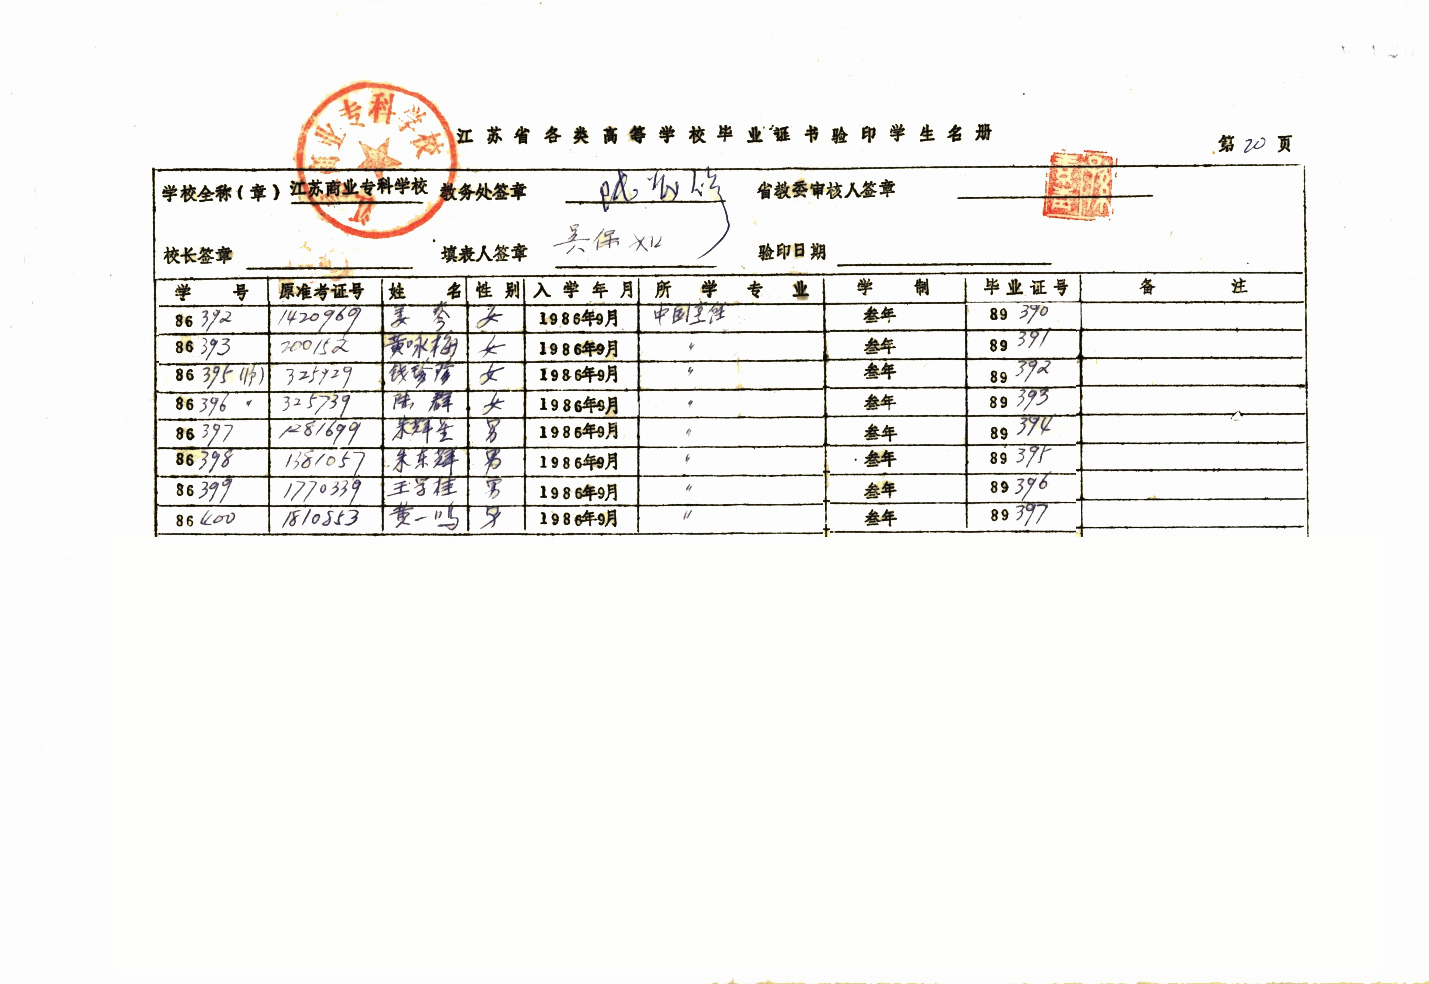 江苏省各类高等学校毕业证书验印学生名册
第 20 页
学校全称(章) 江苏商业专科学校 教务处签章 省教委审核人签章
校长签章 填表人签章 吴保 验印日期
学号 原准考证号 姓名 性别 入学年月 所学专业 学制 毕业证号 备注
86 392 1420969 姜岑 女 1986年9月 中国烹饪 叁年 89 390
86 393 200152 黄咏梅 女 1986年9月 〃 叁年 89 391
86 395 325929 钱 女 1986年9月 〃 叁年 89 392
86 396 〃 325739 陆群 女 1986年9月 〃 叁年 89 393
86 397 1281699 朱辉生 男 1986年9月 〃 叁年 89 394
86 398 1381057 朱东辉 男 1986年9月 〃 叁年 89 395
86 399 1770339 王学桂 男 1986年9月 〃 叁年 89 396
86 400 1810853 黄一鸣 男 1986年9月 〃 叁年 89 397